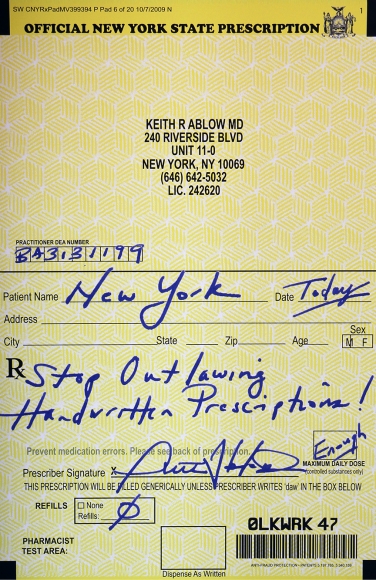 SW CNYRxPadMV399394 P Pad 6 of 20 10/7/2009 N
1
OFFICIAL NEW YORK STATE PRESCRIPTION
KEITH R ABLOW MD
240 RIVERSIDE BLVD
UNIT 11-0
NEW YORK, NY 10069
(646) 642-5032
LIC. 242620
PRACTITIONER DEA NUMBER
BA3131199
Patient Name New York Date Today
Address
City State Zip Age Sex
M F
Rx Stop Outlawing
Handwritten Prescriptions!
Prevent medication errors. Please see back of prescription.
Enough
MAXIMUM DAILY DOSE
(controlled substances only)
Prescriber Signature x
THIS PRESCRIPTION WILL BE FILLED GENERICALLY UNLESS PRESCRIBER WRITES 'daw' IN THE BOX BELOW
REFILLS None
Refills: Ø
PHARMACIST
TEST AREA:
Dispense As Written
0LKWRK 47